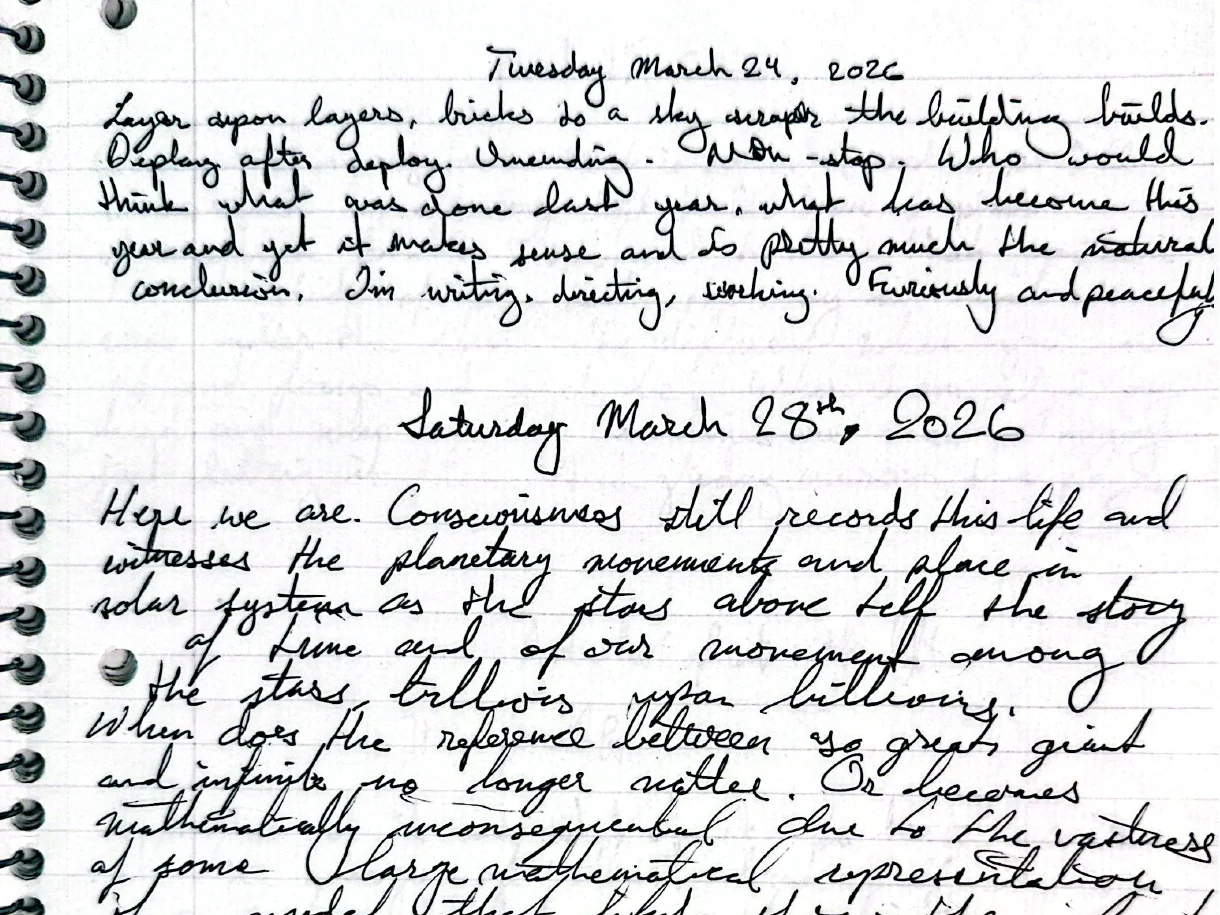 Tuesday March 24, 2026
Layer upon layers, bricks to a sky scraper the building builds.
Deploy after deploy. Unending. Non-stop. Who would
think what was done last year, what has become this
year and yet it makes sense and is pretty much the natural
conclusion. I'm writing, directing, working. Furiously and peacefully
Saturday March 28th, 2026
Here we are. Consciousness still records this life and
witnesses the planetary movements and place in
solar system as the stars above tell the story
of time and of our movement among
the stars, upon billions.
When does the reference between so great, giant
and infinite no longer matter. Or becomes
mathematically inconsequential due to the vastness
of some large mathematical representation
model that